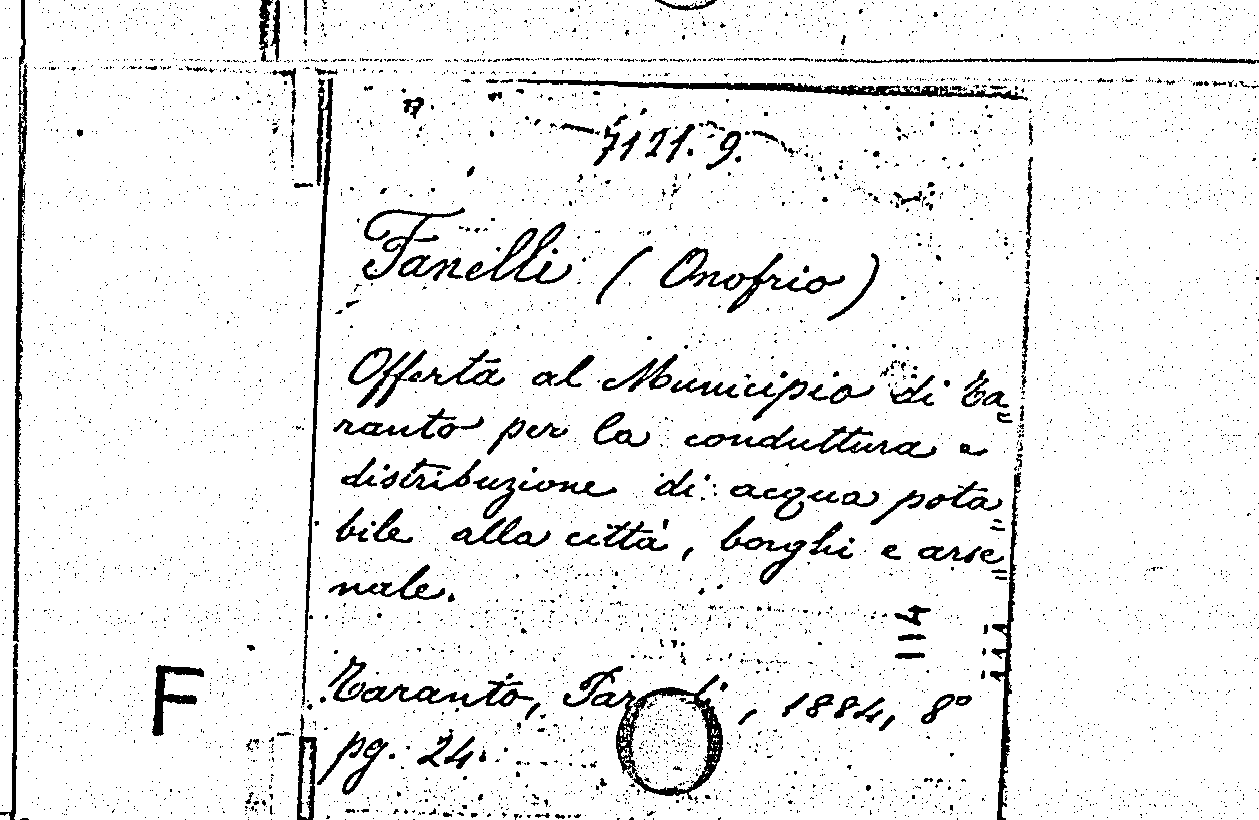 7121. 9.
Fanelli (Onofrio)
Offerta al Municipio di Ta=
ranto per la conduttura e
distribuzione di acqua pota=
bile alla città, borghi e arse=
nale.
Taranto, , 1884, 8º
pg. 24.
F